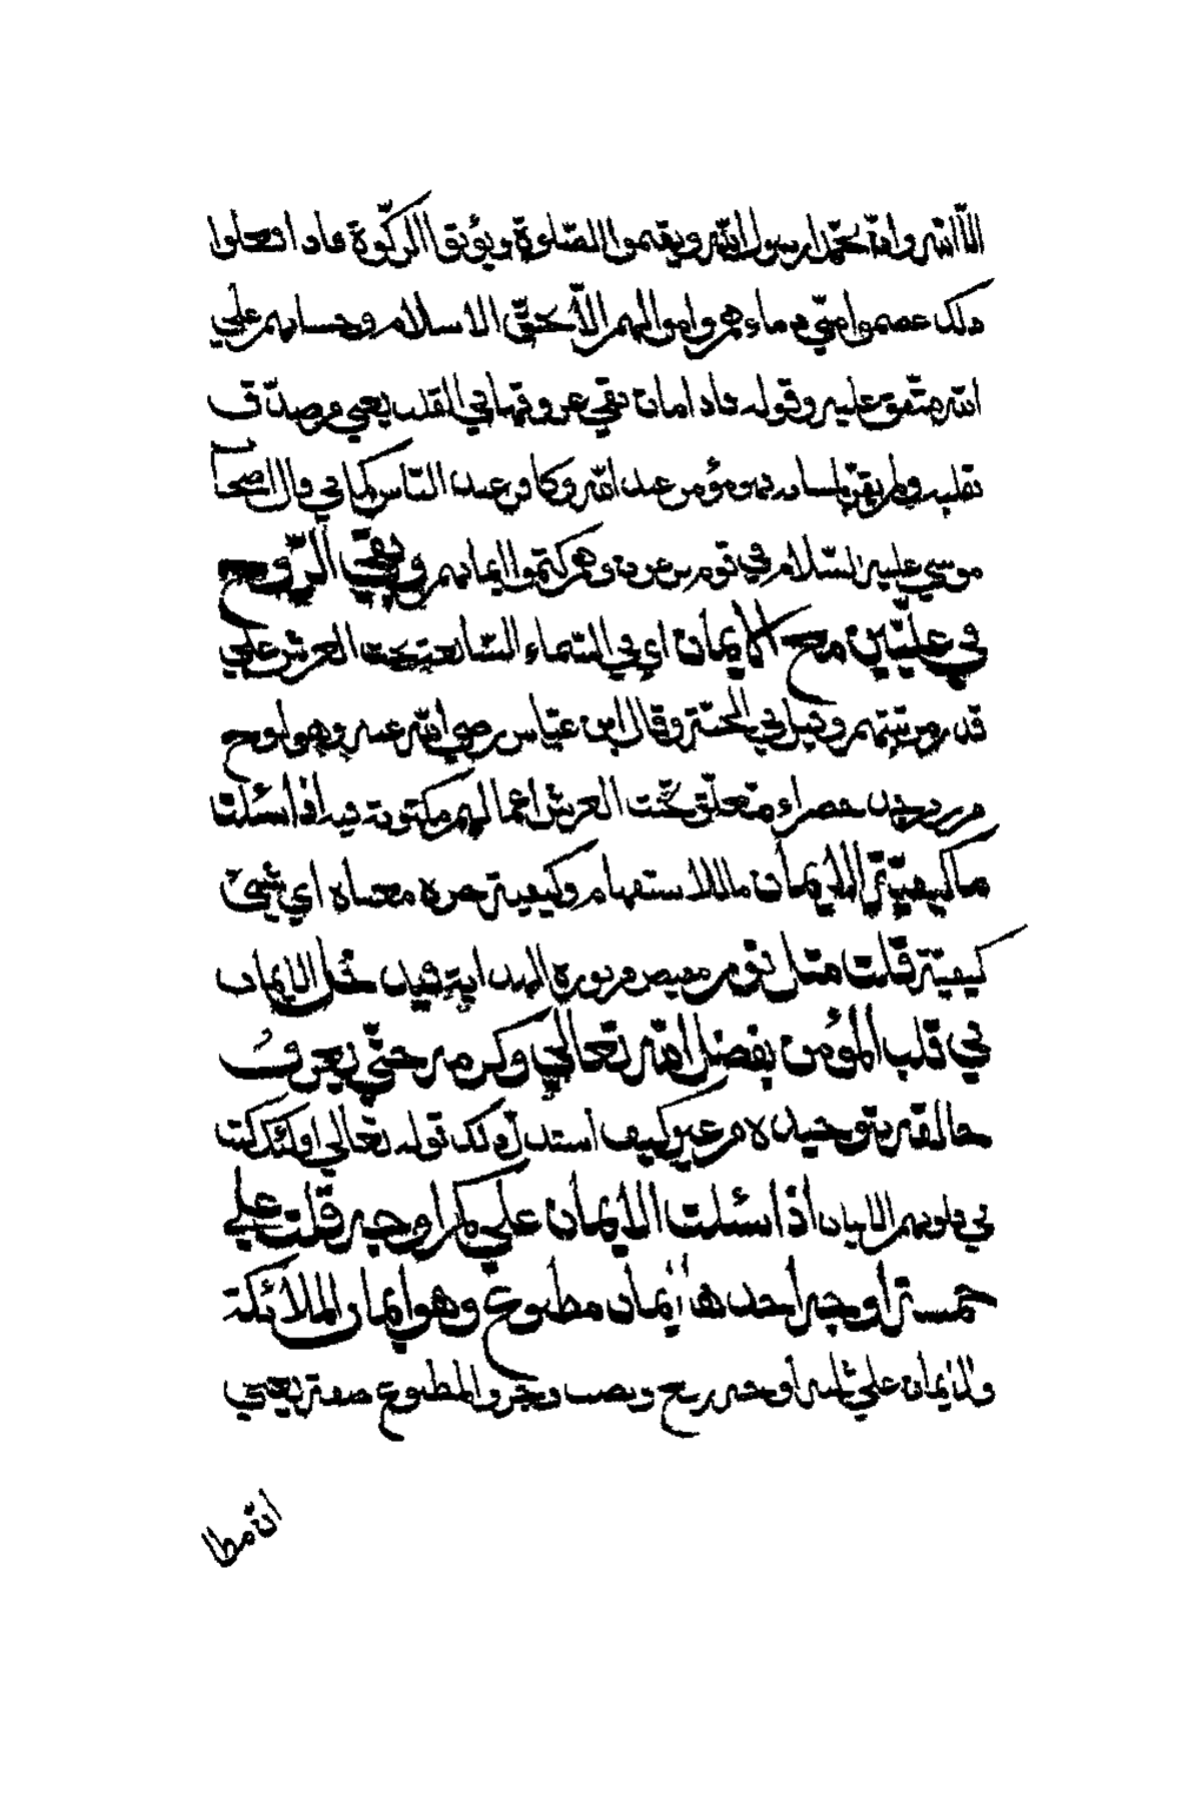 الا الله وان محمدا رسول الله ويقيموا الصلوة ويؤتوا الزكوة فاذا فعلوا
ذلك عصموا مني دماءهم واموالهم الا بحق الاسلام وحسابهم علي
الله متفق عليه وقوله فاذا مات بقي عروقها في القلب يعني من صدق
بقلبه ولم يقر بلسانه فهو مؤمن عند الله وكافر عند الناس كما في قال اصحاب
موسي عليه السلام في قوم فرعون وهم كتموا ايمانهم ويبقي الروح
في عليين مع الايمان اي في السماء السابعة تحت العرش علي
قدر مرتبتهم وقيل في الجنة وقال ابن عباس رضي الله عنه وهو لوح
من زبرجد خضراء معلق تحت العرش اعمالهم مكتوبة فيه اذا سئلت
ما كيفية الايمان ما للاستفهام وكيفية خبره معناه اي شيئ
كيفية قلت مثل نور مضيئ من نور الهداية دخل الايمان
في قلب المؤمن بفضل الله تعالي وكرمه حتي يعرف
خالقه بتوحيده من غير كيف استدل ذلك قوله تعالي اولئك كتب
في قلوبهم الايمان اذا سئلت الايمان علي كم اوجه قلت علي
خمسة اوجه احدها ايمان مطبوع وهو ايمان الملائكة
والايمان علي ثلثة اوجه رفع ونصب وجر والمطبوع صفته يعني